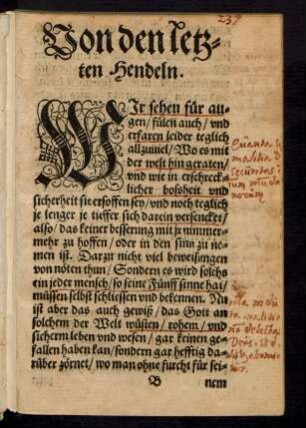 237
Von den letz⸗
ten Hendeln.
WIr sehen für au⸗
gen / fülen auch / vnd
erfaren leider teglich
allzuuiel / Wo es mit
der welt hin geraten /
vnd wie in erschreck⸗
licher bosheit vnd
sicherheit sie ersoffen sey / vnd noch teglich
je lenger je tieffer sich darein versencket /
also / das keiner besserung mit jr nimmer⸗
mehr zu hoffen / oder in den sinn zu ne⸗
men ist. Darzu nicht viel beweisungen
von nöten thun / Sondern es wird solchs
ein jeder mensch / so seine Fünff sinne hat /
müssen selbst schliessen vnd bekennen. Nu
ist aber das auch gewiß / das Gott an
solchem der Welt wüsten / rohem / vnd
sicherm leben vnd wesen / gar keinen ge⸗
fallen haben kan / sondern gar hefftig da⸗
rüber zörnet / wo man ohne furcht für sei⸗
B nem
Quanta
malitia
securitas